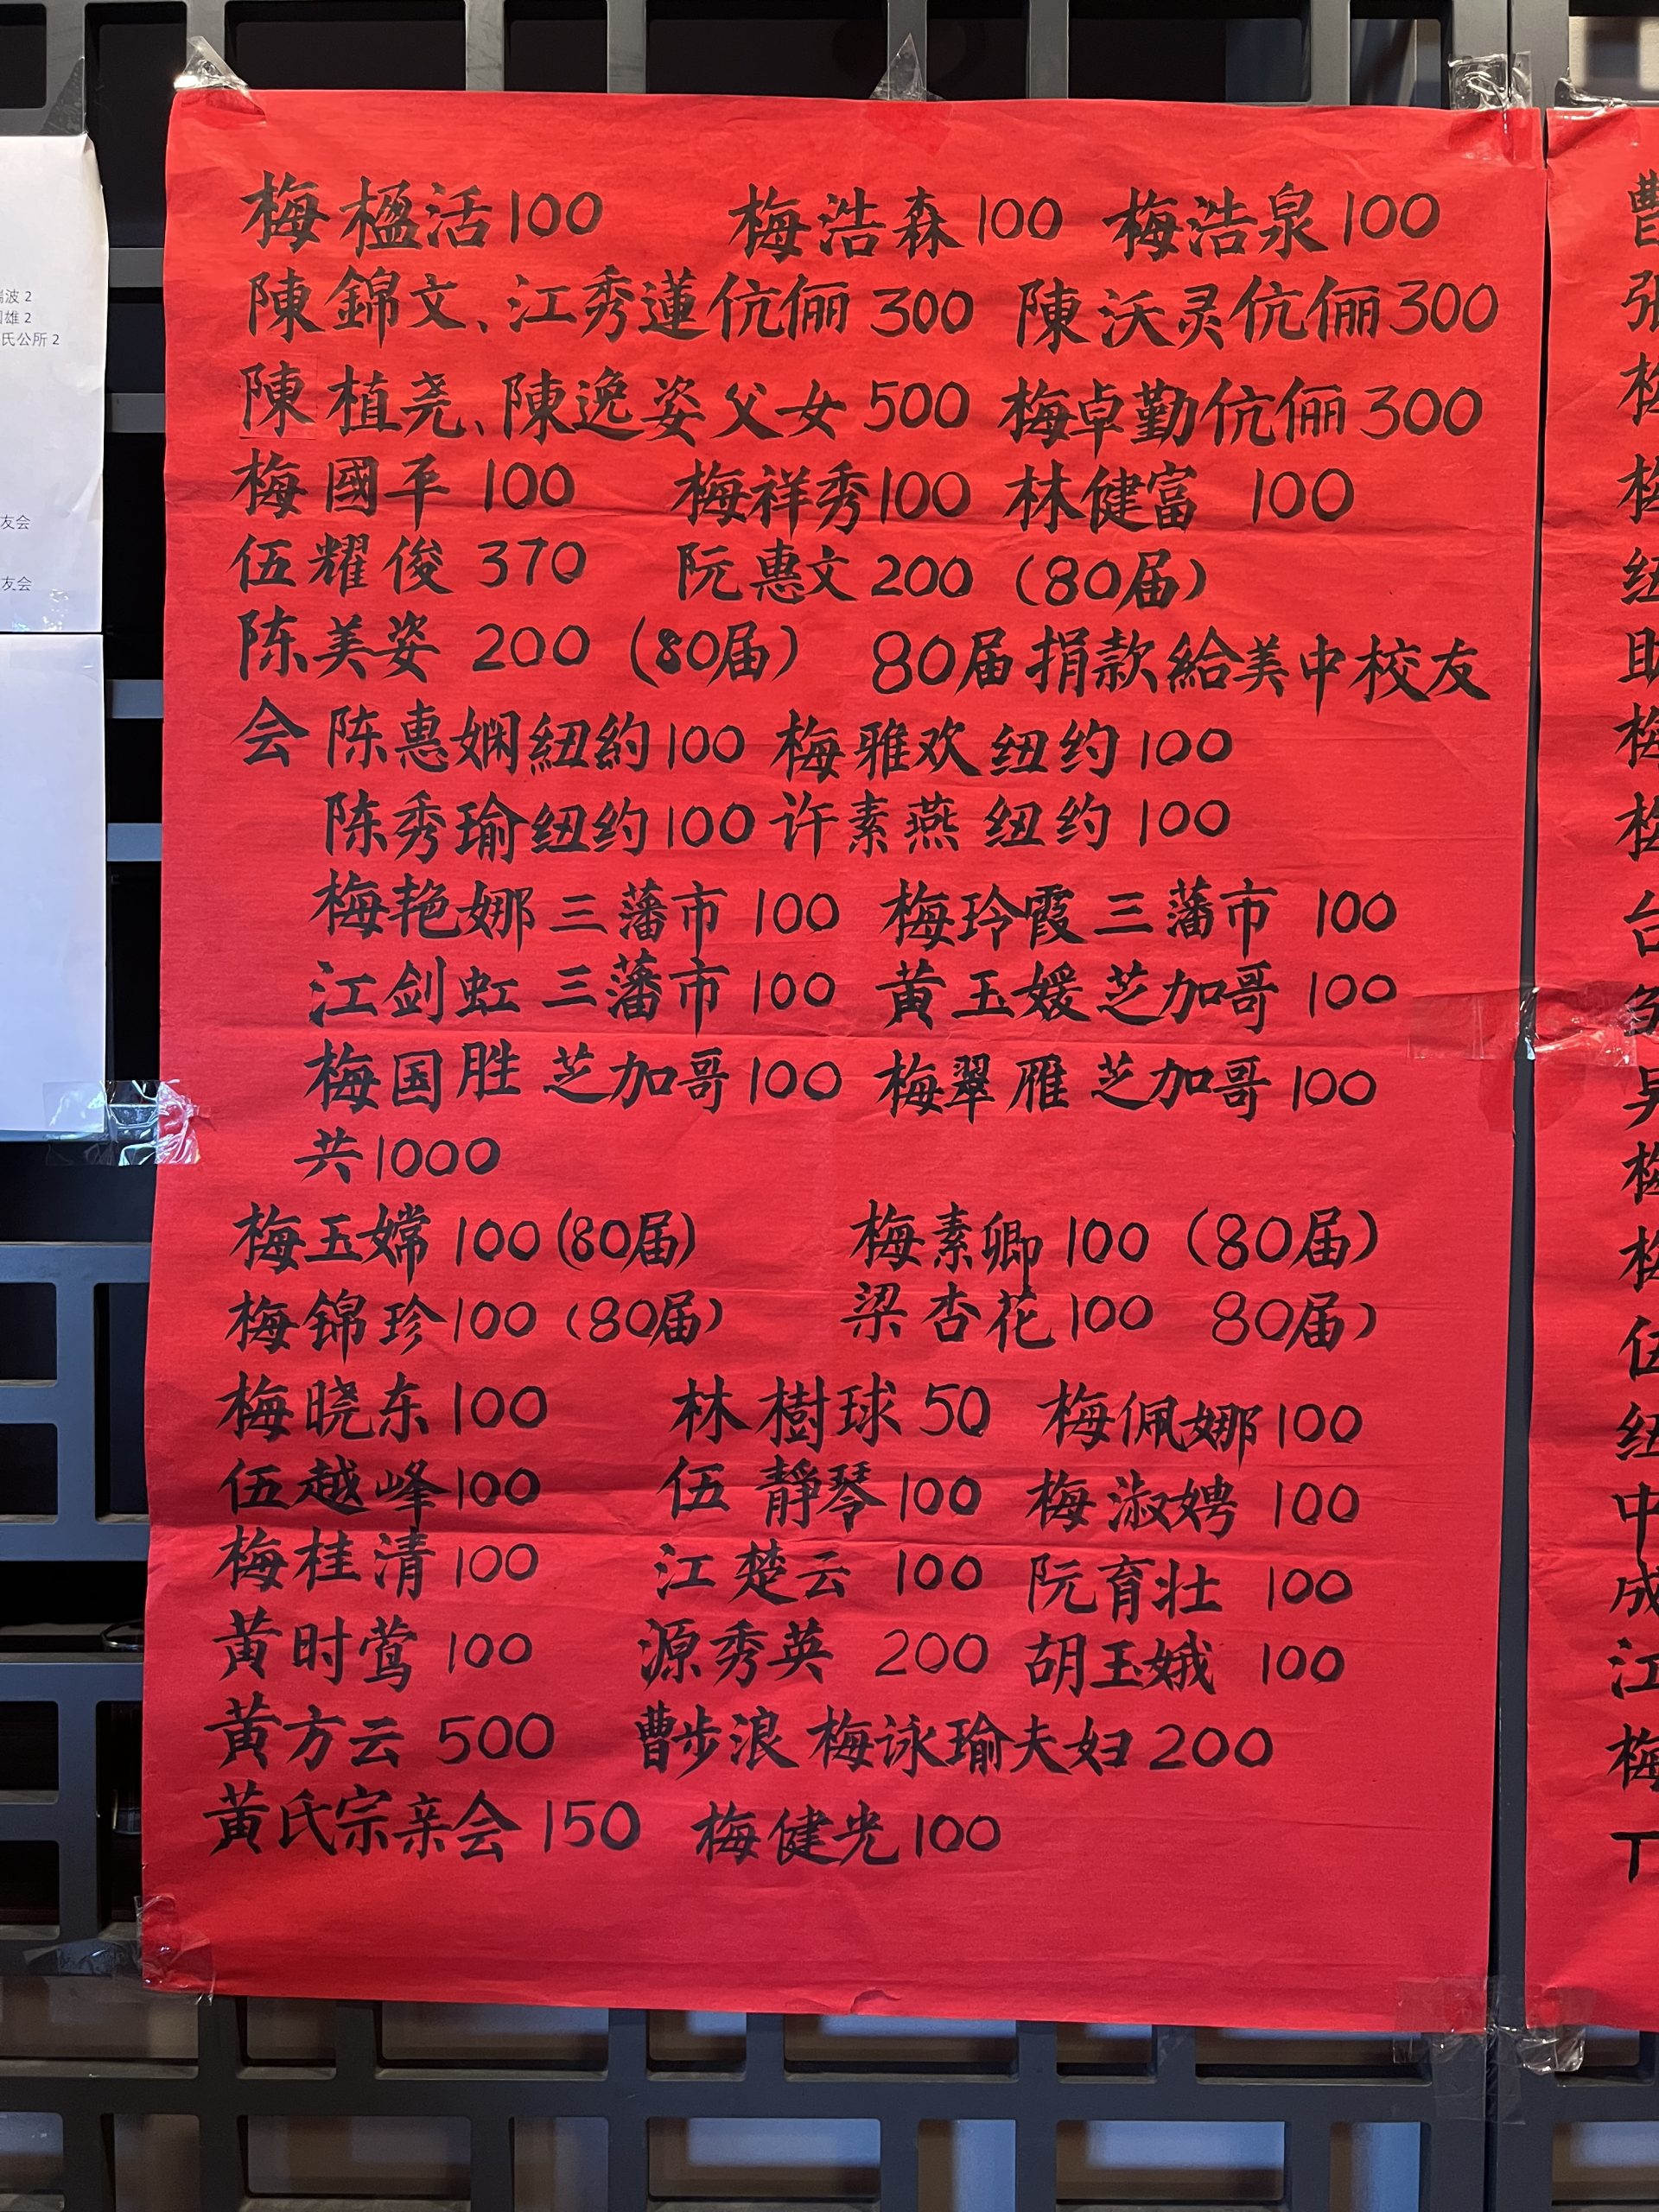 梅楹活100 梅浩森100 梅浩泉100
陳錦文、江秀蓮伉俪300 陳沃灵伉俪300
陳植尧、陳逸姿父女500 梅卓勤伉俪300
梅國平100 梅祥秀100 林健富100
伍耀俊370 阮惠文200（80届）
陈美姿200（80届） 80届捐款給美中校友
会 陈惠娴紐約100 梅雅欢纽约100
陈秀瑜纽约100 许素燕纽约100
梅艳娜三藩市100 梅玲霞三藩市100
江剑虹三藩市100 黄玉媛芝加哥100
梅国胜芝加哥100 梅翠雁芝加哥100
共1000
梅玉嫦100(80届) 梅素卿100（80届）
梅锦珍100（80届） 梁杏花100 80届）
梅晓东100 林樹球50 梅佩娜100
伍越峰100 伍靜琴100 梅淑娉100
梅桂清100 江楚云100 阮育壮100
黄时莺100 源秀英200 胡玉娥100
黄方云500 曹步浪 梅泳瑜夫妇200
黄氏宗亲会150 梅健光100
波2
雄2
氏公所2
友会
友会
曹
张
梅
梅
纽
梅
梅
台
吴
梅
梅
伍
纽
中
成
江
梅